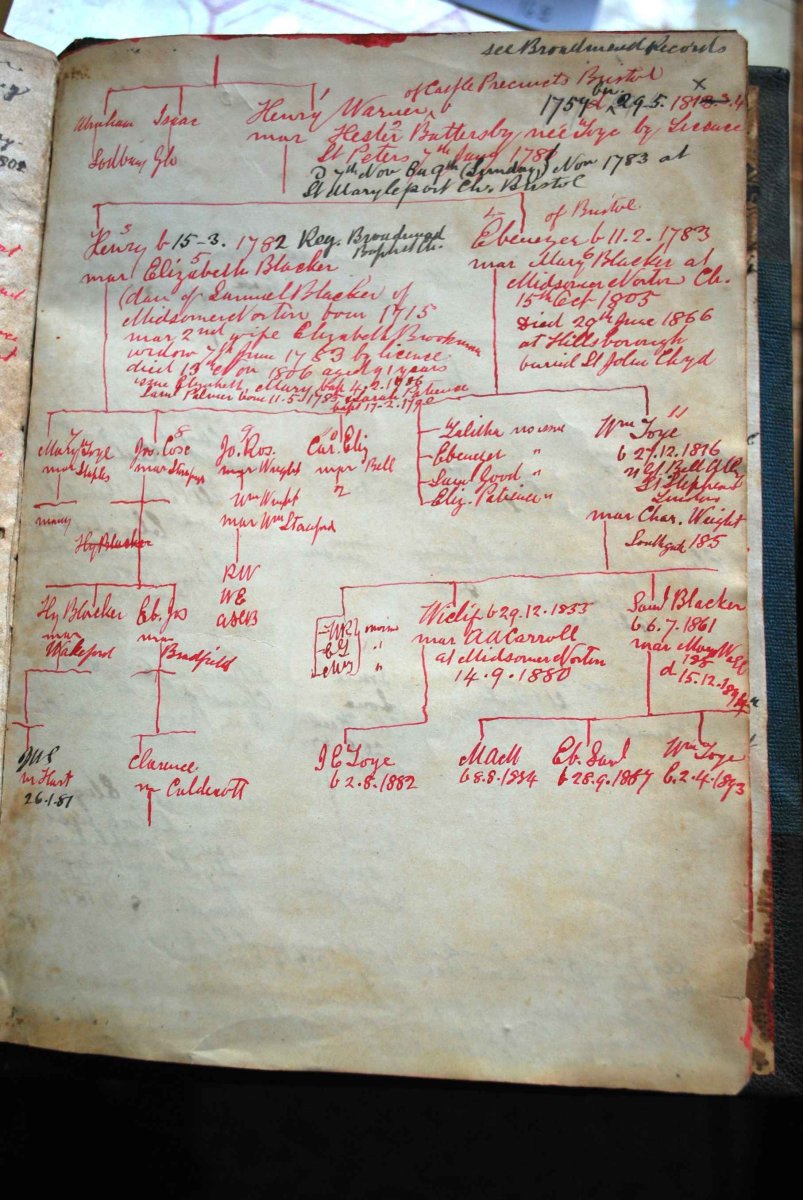 see Broadmead Records
of Castle Precincts Bristol
Abraham Isaac
Sodbury Glo
Henry Warner b 1754 29.5.
mar Hester Battersby nee Toye by Licence
St Peters 7th Jany 1781
D 7th Nov Bu 9th (Sunday) Nov 1783 at
St Maryleport Ch. Bristol
Henry b 15-3. 1782 Reg. Broadmead
Baptist Ch.
mar Elizabeth Blacker
(dau of Samuel Blacker of
Midsomer Norton born 1715
mar 2nd wife Elizabeth Brookman
widow 7th June 1783 by licence
died 13th Nov 1806 aged 91 years
issue Elizabeth, Mary bap 4.2.1786
Saml Palmer born 11-5-1785 & Sarah Patience
bapt 17-2-1790
of Bristol
Ebenezer b 11.2.1783
mar Mary Blacker at
Midsomer Norton Ch.
15th Oct 1805
Died 29th June 1866
at Hillsborough
buried St John Clwyd
Mary Toye
mar Staples
many
Jos. Cose
mar
Hy Blacker
Jo. Ros.
mar Wright
Wm Wright
mar Wm
RW
WE
Car. Eliz
mar Bell
Talitha no issue
Ebenezer "
Saml Good "
Eliz. Patience "
Wm Toye
b 27.12.1816
of Bell Alley
St Stephens
London
mar Char. Weight
Southgate 185
Hy Blacker
mar
Wakeford
Eb. Jos
mar
Bradfield
Wiclif b 29.12.1855
mar A A Carroll
at Midsomer Norton
14.9.1880
Saml Blacker
b 6.7.1861
mar Mary Wall
185
d 15.12.
m Hart
26.1.51
Clarence
m Caldecott
J E Toye
b 2.8.1882
MAM
b 8.8.1884
Eb. Saml
b 28.9.1887
Wm Toye
b. 2.4.1893